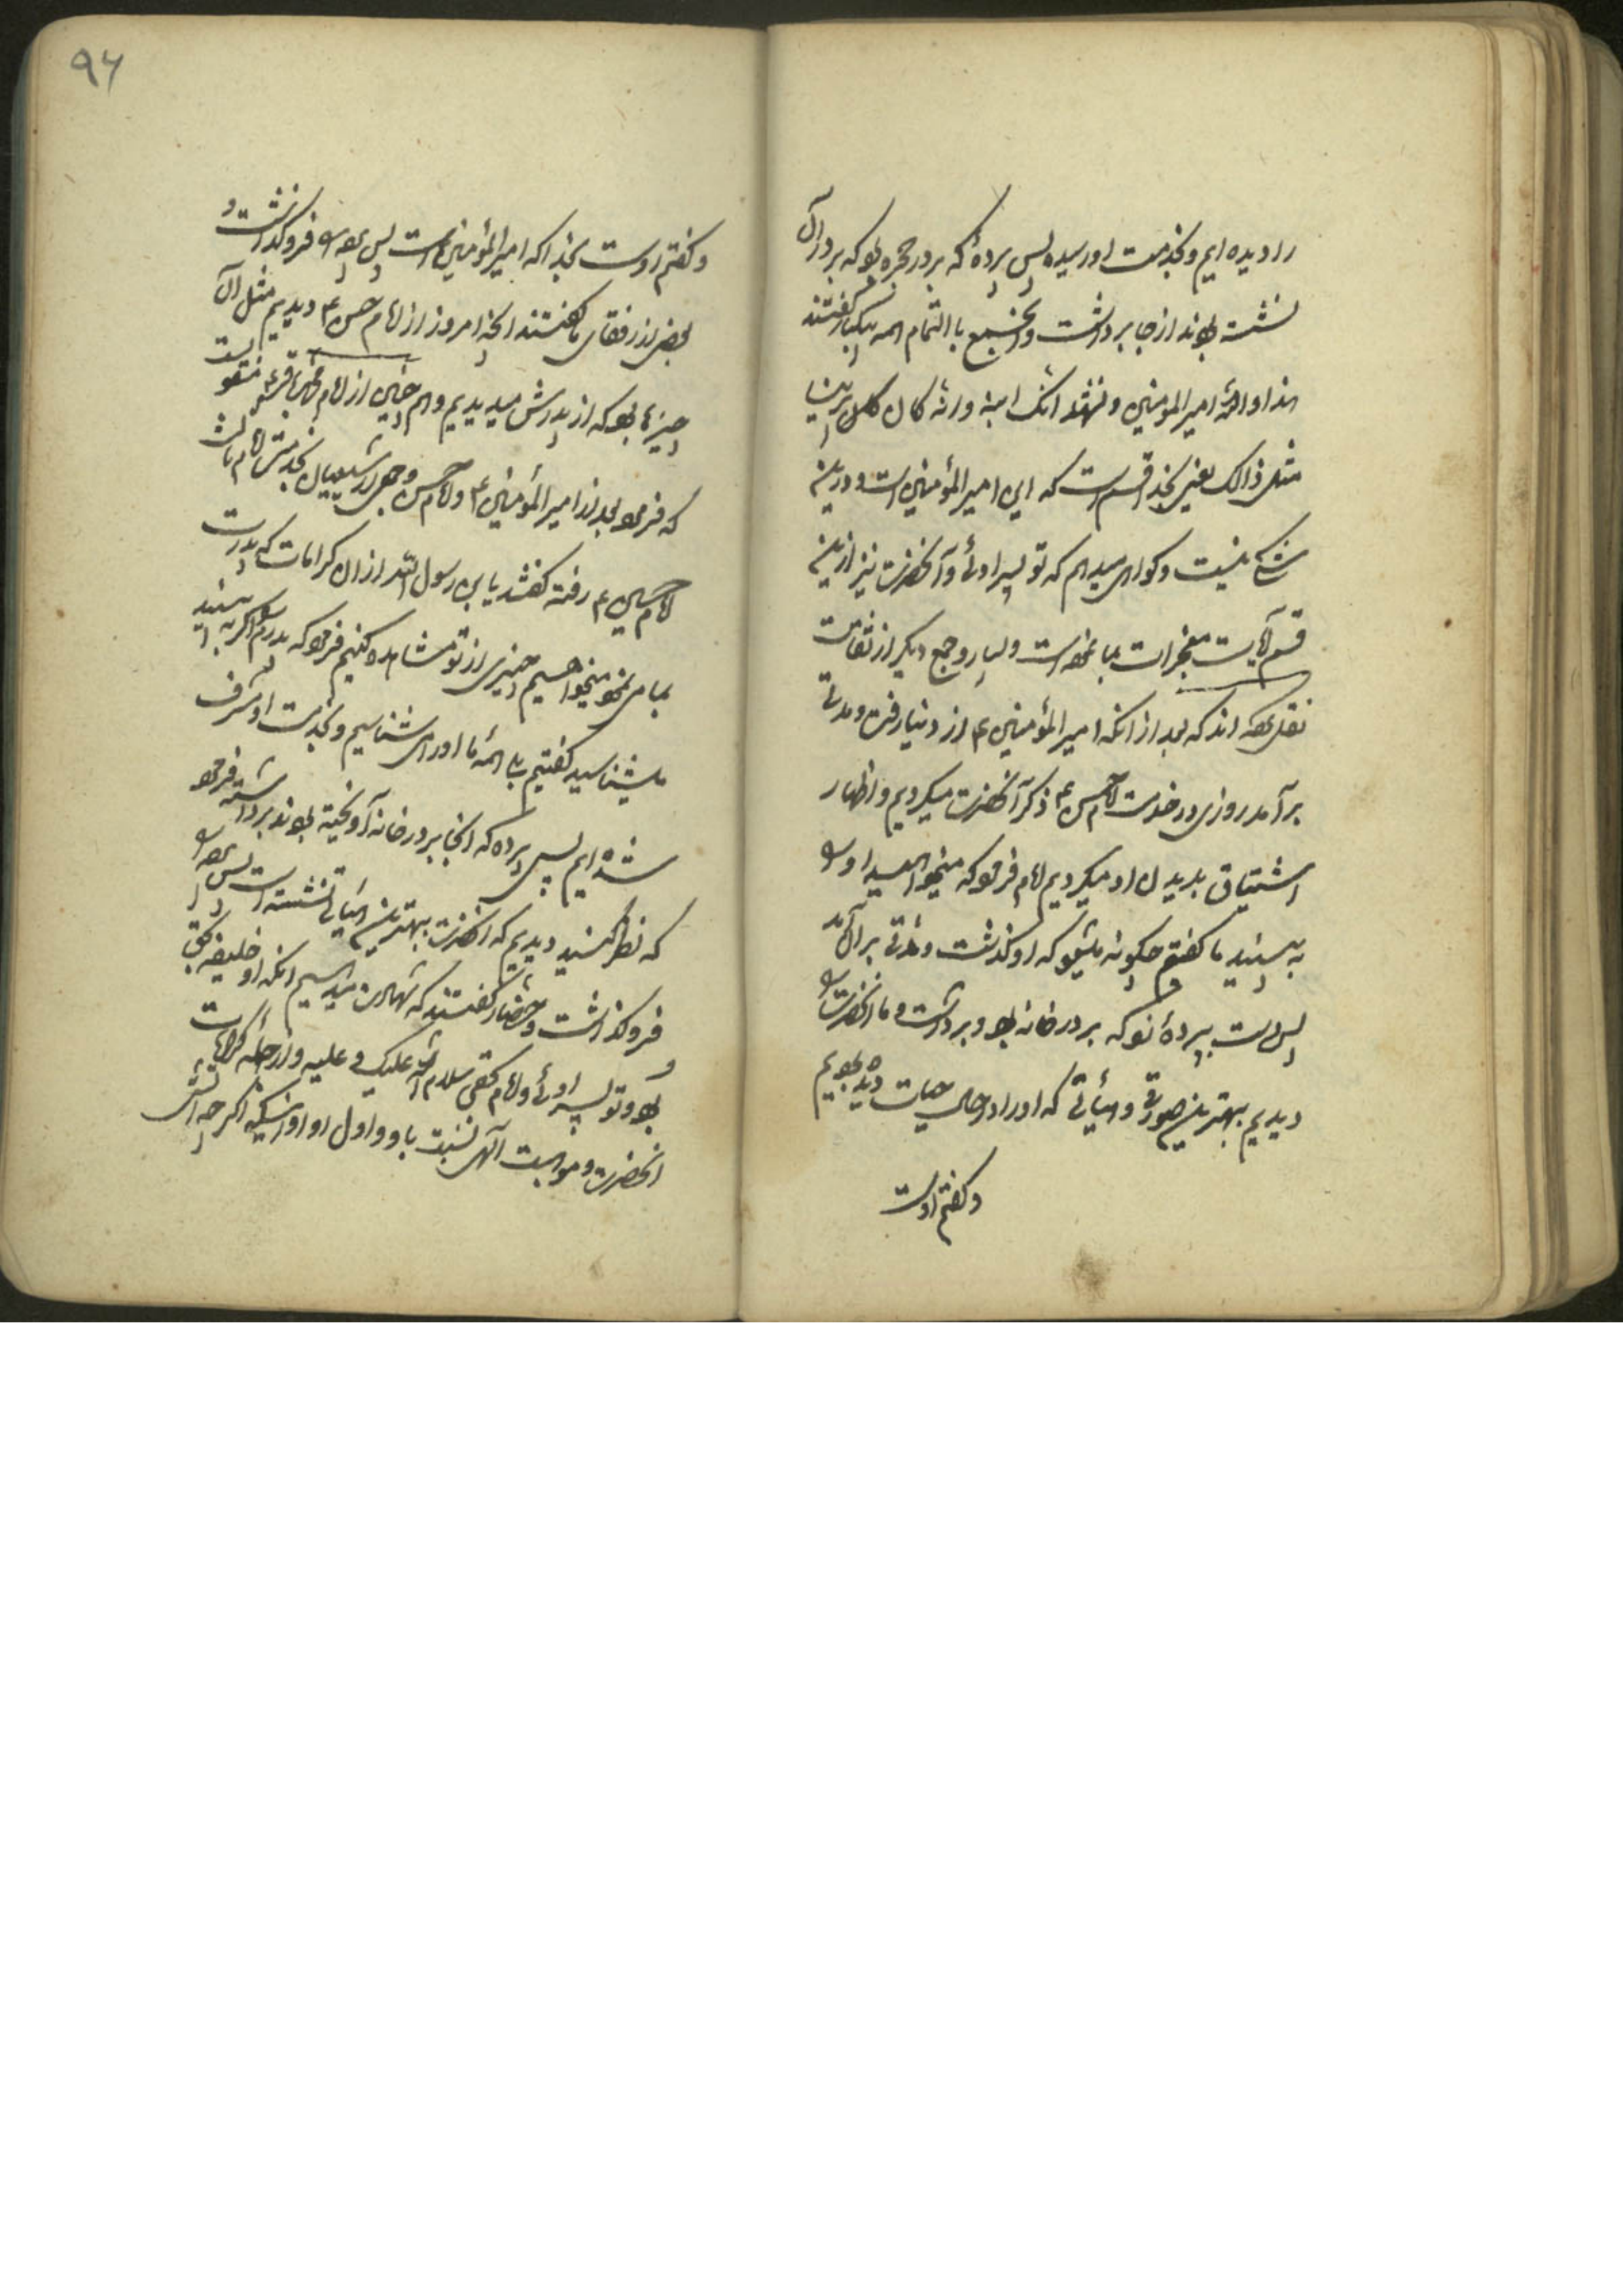 را دیده ایم و بخدمت او رسیده پس پردهٔ که بر در حجره بود که بر در آن
نشسته بودند از جا برداشت و آنجمع باالتمام همه بیکبار گفتند
هذا والله امیر المومنین و نشهد انک ابنه وانه کان یرینا
مثل ذالک یعنی بخدا قسم است که این امیر المؤمنین است و درین
شکی نیست و گواهی میدهیم که تو پسر اوئی و آنحضرت نیز ازین
قسم آیات معجزات بما نموده است و بسیار و جمع دیگر از ثقات
نقل کرده اند که بعد از آنکه امیر المؤمنین ع از دنیا رفت و مدتی
برآمد روزی در خدمت امام حسن ع ذکر آنحضرت میکردیم و اظهار
اشتیاق بدیدن او میکردیم امام فرمود که میخواهید او را
به بینید ما گفتیم چگونه میشود که او گذشت و مدتی بر آن
پس دست بپردهٔ نو که بر در خانه بود و برداشت و ما آنحضرت را
دیدیم بهترین صورتی و هیأتی که او را در حال حیات دیده بودیم
و گفتیم اوست
۹۶
و گفتیم اوست بخدا که امیر المؤمنین است پس پرده را فروگذاشت و
بعضی از رفقای ما گفتند آنچه امروز از امام حسن ع دیدیم مثل آن
چیزها بود که از پدرش میدیدیم و همچنین از امام محمد باقر ع منقولست
که فرمود بعد از امیر المؤمنین ع و امام حسن جمعی از شیعیان بخدمت امام
امام حسین ع رفته گفتند یا بن رسول الله از آن کرامات که پدرت
بما می نمود میخواهیم چیزی از تو مشاهده کنیم فرمود که پدرم را اگر به بینید
میشناسید گفتیم بلی همهٔ ما او را می شناسیم و بخدمت او مشرف
شده ایم پس پرده که آنجا بر در خانه آویخته بودند برداشته فرمود
که نظر کنید دیدیم که آنحضرت بهترین هیأتی نشسته است پس پرده را
فروگذاشت و حضار گفتند که شهادت میدهیم آنکه او خلیفه بحق
بود و تو پسر اوئی و امام بحقی سلام الله علیک و علیه و از جمله کرامات
آنحضرت و موهبت الهی نسبت باو و اول او اینکه اگر چه آتش